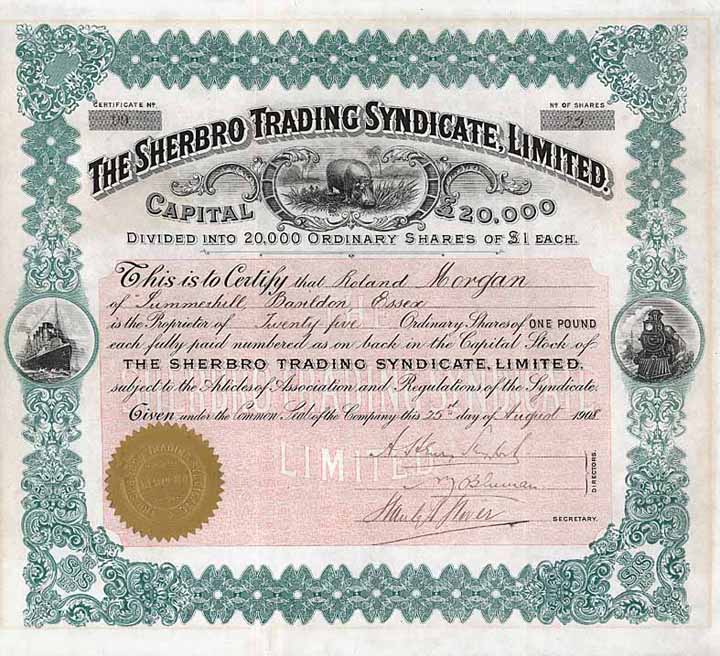 CERTIFICATE Nº
Nº OF SHARES
25
THE SHERBRO TRADING SYNDICATE, LIMITED.
CAPITAL £20,000
DIVIDED INTO 20,000 ORDINARY SHARES OF £1 EACH.
This is to Certify that Roland Morgan
of Summerhill, Basildon Essex
is the Proprietor of Twenty five Ordinary Shares of ONE POUND
each fully paid numbered as on back in the Capital Stock of
THE SHERBRO TRADING SYNDICATE, LIMITED.
subject to the Articles of Association and Regulations of the Syndicate.
Given under the Common Seal of the Company this 25th day of August 1908
LIMITED
DIRECTORS.
SECRETARY.